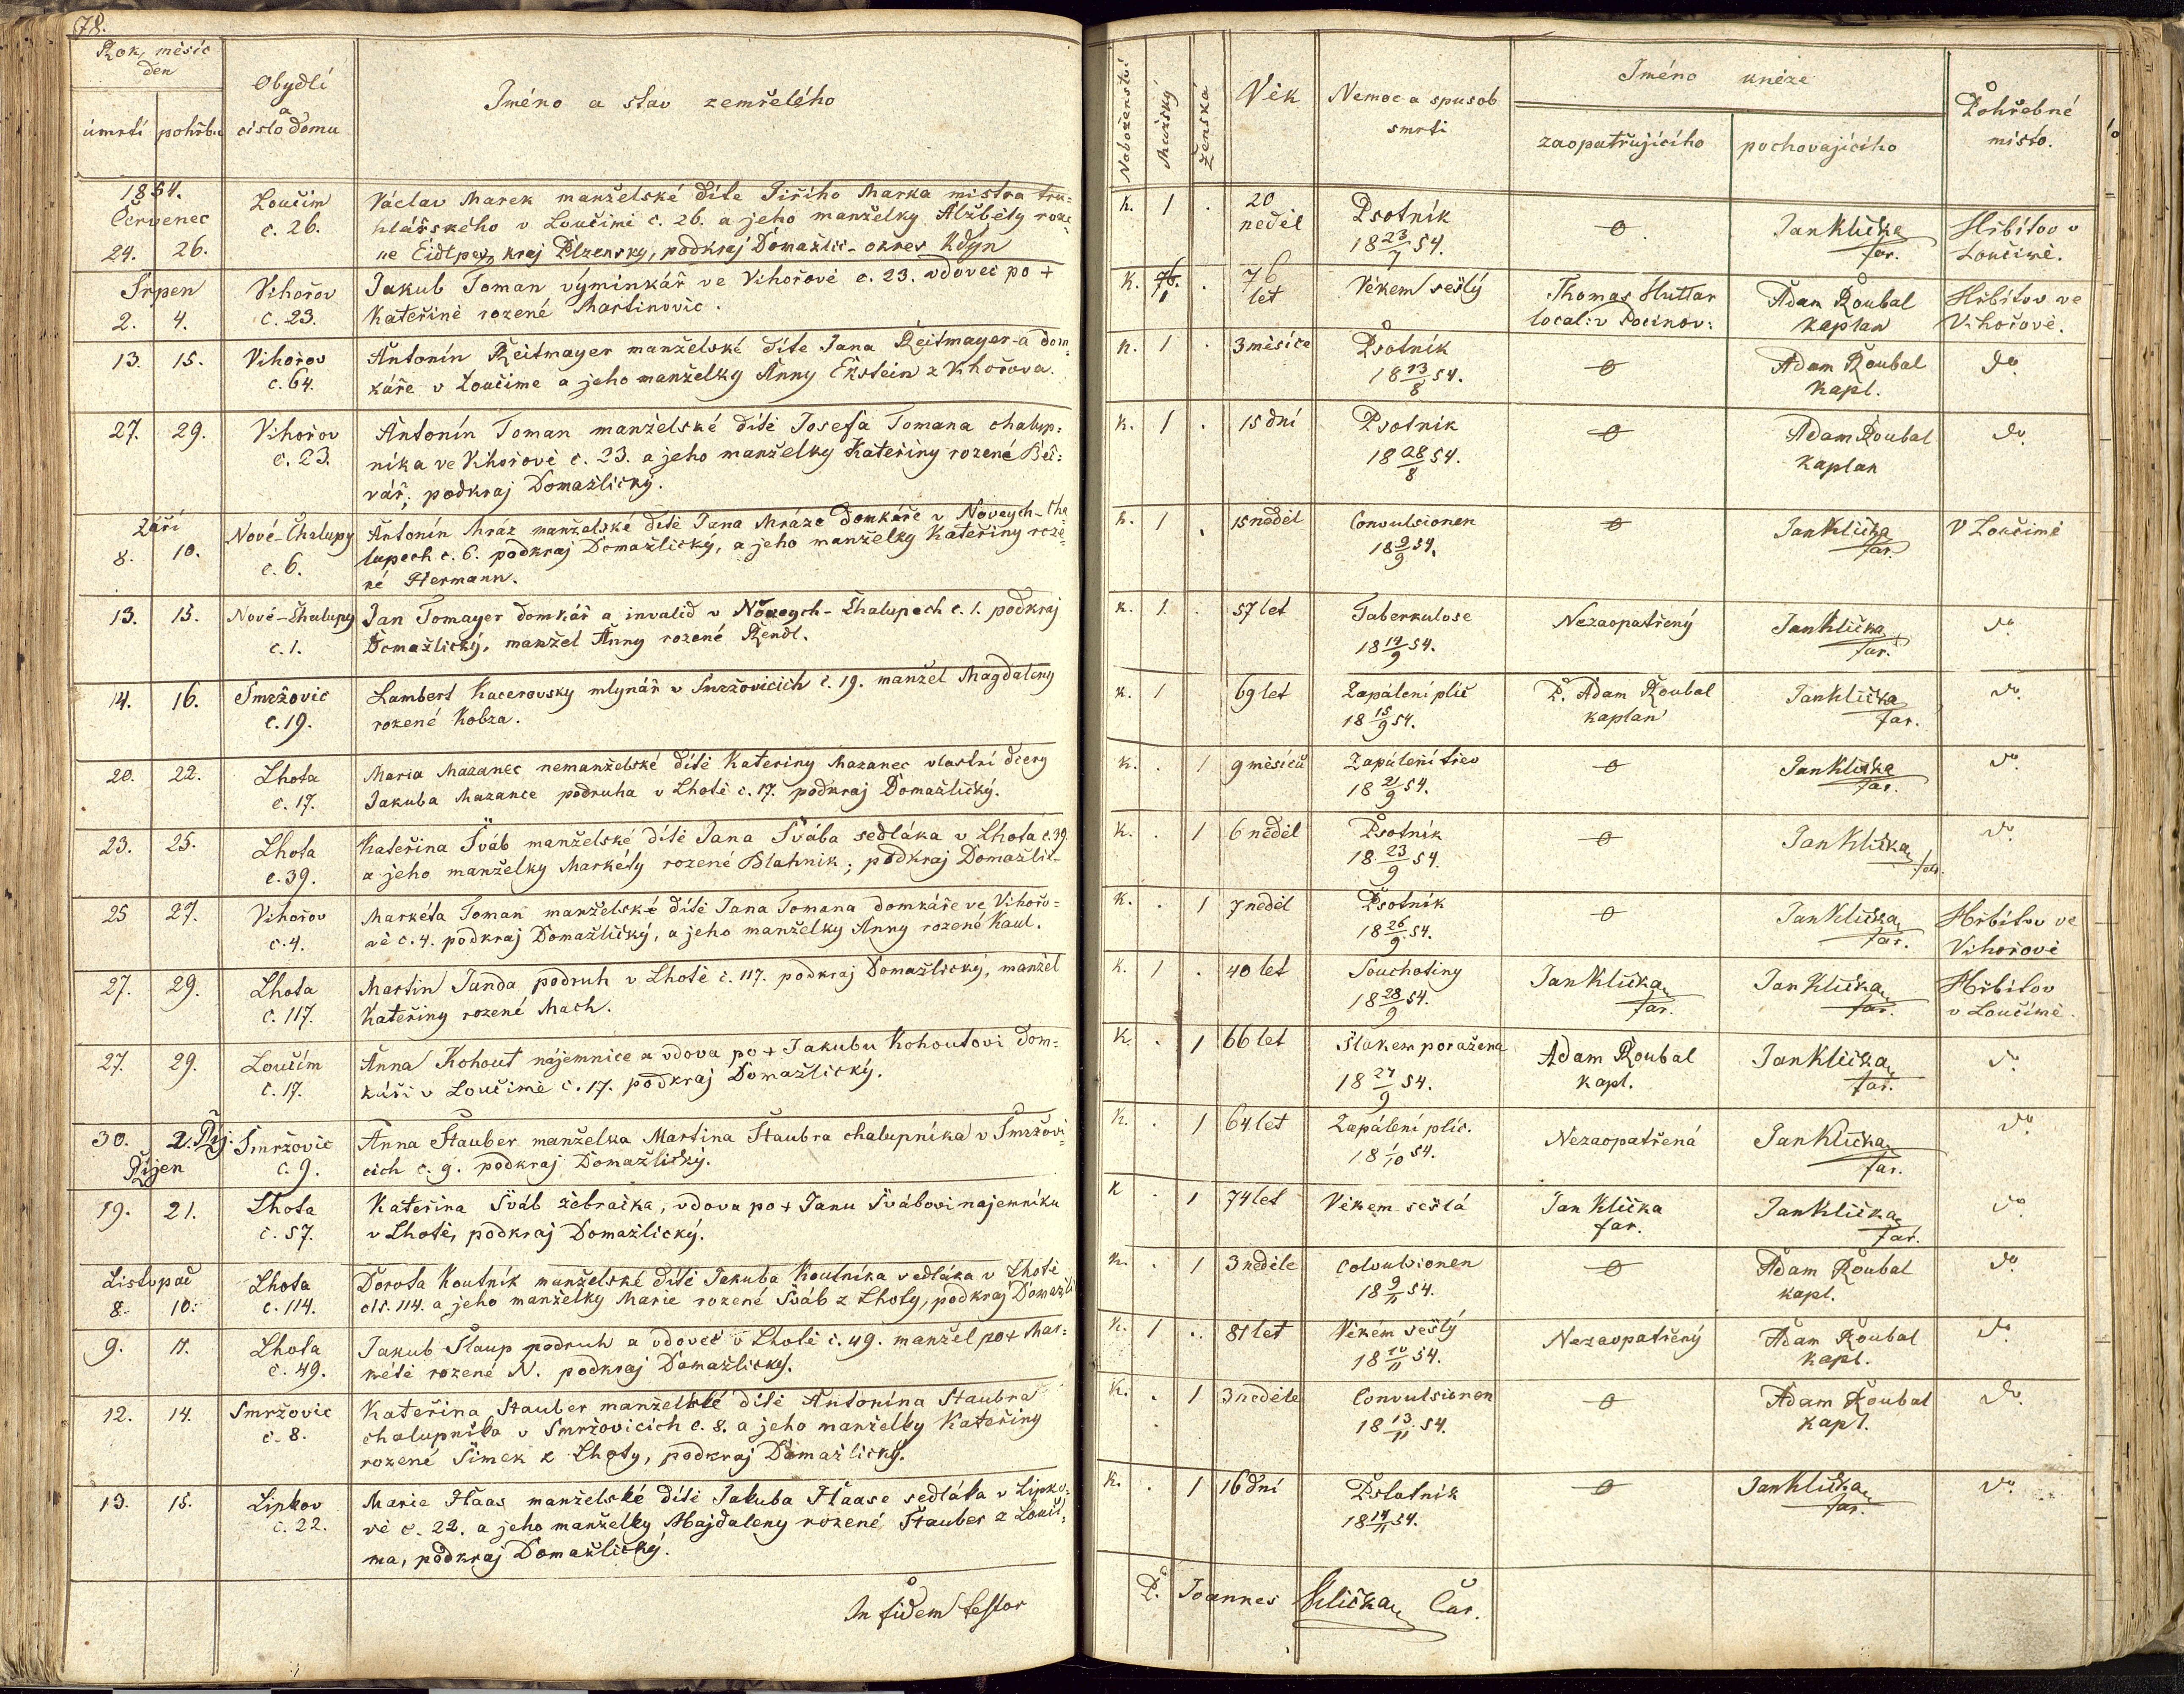 78.
Rok, měsíc
den
úmrtí pohřbu
Obydlí
a
číslo domu
Jméno a stav zemřelého
1854.
Červenec
24. 26.
Loučim
č. 26.
Václav Marek manželské dítě Jiřího Marka mistra tru=
hlářského v Loučimi č. 26. a jeho manželky Alžběty roze
né Eidlpes, kraj Plzenský, podkraj Domažlic - okres Kdyn
Srpen
2. 4.
Vihořov
č. 23.
Jakub Toman výminkář ve Vihořově č. 23. vdovec po +
Kateřině rozené Martinovic.
13. 15.
Vihořov
č. 64.
Antonín Reitmayer manželské dítě Jana Reitmayer-a dom=
káře v Loučime a jeho manželky Anny Ekstein z Vihořova.
27. 29.
Vihořov
č. 23.
Antonín Toman manželské dítě Josefa Tomana chalup=
níka ve Vihořově č. 23. a jeho manželky Kateřiny rozené Beč=
vář; podkraj Domažlický.
Září
8. 10.
Nové-Chalupy
č. 6.
Antonín Mráz manželské dítě Jana Mráze domkáře v Nových-Cha
lupech č. 6. podkraj Domažlický, a jeho manželky Kateřiny roze=
né Hermann.
13. 15.
Nové-Chalupy
č. 1.
Jan Tomayer domkář a invalid v Nových-Chalupech č. 1. podkraj
Domažlický, manžel Anny rozené Rendl.
14. 16.
Smržovic
č. 19.
Lambert Kacerovsky mlynář v Smržovicích č. 19. manžel Magdaleny
rozené Kobza.
20. 22.
Lhota
č. 17.
Maria Mazanec nemanželské dítě Kateřiny Mazanec vlastní dcery
Jakuba Mazance podruha v Lhotě č. 17. podkraj Domažlický.
23. 25.
Lhota
č. 39.
Kateřina Šváb manželské dítě Jana Švába sedláka v Lhota č. 39
a jeho manželky Markéty rozené Blahnik; podkraj Domažlic-
25 27.
Vihořov
č. 4.
Markéta Toman manželské dítě Jana Tomana domkáře ve Vihořo=
vě č. 4. podkraj Domažlický, a jeho manželky Anny rozené Kaul.
27. 29.
Lhota
č. 117.
Martin Janda podruh v Lhotě č. 117. podkraj Domažlický, manžel
Kateřiny rozené Mach.
27. 29.
Loučím
č. 17.
Anna Kohout nájemnice a vdova po + Jakubu Kohoutovi dom=
káři v Loučimě č. 17. podkraj Domažlický.
30. 2. Říj.
Smržovic
č. 9.
Anna Stauber manželka Martina Staubra chalupníka v Smržovi=
cích č. 9. podkraj Domažlický.
Říjen
19. 21.
Lhota
č. 57.
Kateřina Šváb žebračka, vdova po + Janu Švábovi najemníku
v Lhotě, podkraj Domažlický.
Listopad
8. 10.
Lhota
č. 114.
Dorota Koutník manželské dítě Jakuba Koutníka sedláka v Lhotě
čís. 114. a jeho manželky Marie rozené Šváb z Lhoty, podkraj Domažli
9. 11.
Lhota
č. 49.
Jakub Staup podruh a vdovec v Lhotě č. 49. manžel po + Mar=
kétě rozené N. podkraj Domažlický.
12. 14.
Smržovic
č. 8.
Kateřina Stauber manželské dítě Antonína Staubra
chalupníka v Smržovicích č. 8. a jeho manželky Kateřiny
rozené Šimek z Lhoty, podkraj Domažlický.
13. 15.
Lipkov
č. 22.
Marie Haas manželské dítě Jakuba Haase sedláka v Lipko=
vě č. 22. a jeho manželky Majdaleny rozené Stauber z Louči=
ma, podkraj Domažlický.
In fidem testor
Náboženství
Mužský
Ženská
Věk
Nemoc a spusob
smrti
Jméno kněze
zaopatřujícího
pochovajícího
Pohřebné
místo.
K. 1 .
20
neděl
Psotník
18 23/7 54.
0
Jan Klička
far.
Hřbitov v
Loučimě.
K. 76. 1 .
76
let
Věkem sešlý
Thomas Huttar
local: v Pocinov:
Adam Roubal
kaplan
Hřbitov ve
Vihořově.
K. 1 . 3 měsíce
Psotník
18 13/8 54.
0
Adam Roubal
kapl.
do
K. 1 . 15 dní
Psotník
18 28/8 54.
0
Adam Roubal
kaplan
do
K. 1 . 15 neděl
Convulsionen
18 9/9 54.
0
Jan Klička
far.
V Loučimě
K. 1. . 57 let
Taberkulose
18 14/9 54.
Nezaopatřený
Jan Klička
far.
do
K. 1 69 let
Zapálení plic
18 15/9 54.
P. Adam Roubal
kaplan
Jan Klička
far.
do
K. . 1 9 měsíců
Zapálení střev
18 21/9 54.
0
Jan Klička
far.
do
K. . 1 6 neděl
Psotník
18 23/9 54.
0
Jan Klička
far.
do
K. . 1 7 neděl
Psotník
18 26/9 54.
0
Jan Klička
far.
Hřbitov ve
Vihořově
K. 1 . 40 let
Souchotiny
18 28/9 54.
Jan Klička
far.
Jan Klička
far.
Hřbitov
v Loučimě.
K. . 1 66 let
Šlakem poražena
18 27/9 54.
Adam Roubal
kapl.
Jan Klička
far.
do
K. . 1 64 let
Zapálení plic.
18 1/10 54.
Nezaopatřená
Jan Klička
far.
do
K . 1 74 let
Věkem sešlá
Jan Klička
far.
Jan Klička
far.
do
K. . 1 3 neděle
Colvulsionen
18 9/11 54.
0
Adam Roubal
kapl.
do
K. 1 .. 81 let
Věkem sešlý
18 10/11 54.
Nezaopatřený
Adam Roubal
kapl.
do
K. . 1 3 neděle
Convulsionen
18 13/11 54.
0
Adam Roubal
kapl.
do
K. . 1 16 dní
Pslatnik
18 14/11 54.
0
Jan Klička
far.
do
P. Joannes Klička Cur.